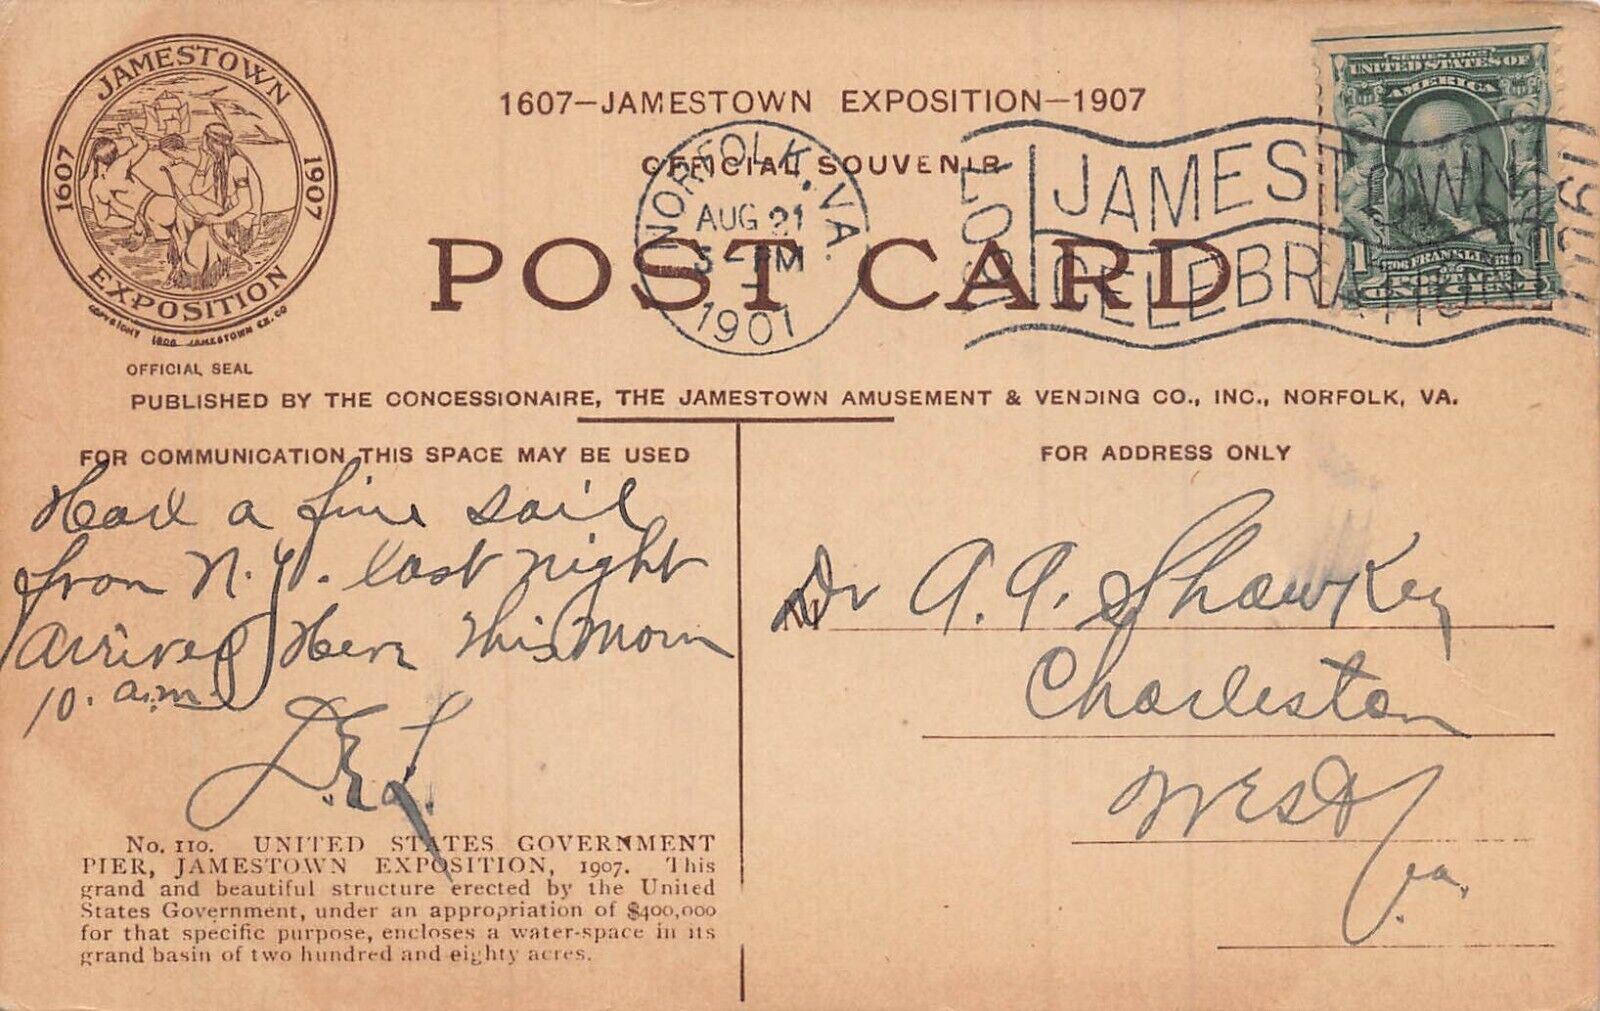 JAMESTOWN
1607 1907
EXPOSITION
COPYRIGHT 1906 JAMESTOWN EX. CO
OFFICIAL SEAL
1607—JAMESTOWN EXPOSITION—1907
OFFICIAL SOUVENIR
POST CARD
NORFOLK, VA.
AUG 21
3 - PM
1907
JAMESTOWN
CELEBRATION
1907
SERIES 1902
UNITED STATES OF
AMERICA
1 1
FRANKLIN
PUBLISHED BY THE CONCESSIONAIRE, THE JAMESTOWN AMUSEMENT & VENDING CO., INC., NORFOLK, VA.
FOR COMMUNICATION THIS SPACE MAY BE USED
Had a fine sail
from N.Y. last night
arrived Here this Morn
10. a.m.
D.E.L.
No. 110. UNITED STATES GOVERNMENT
PIER, JAMESTOWN EXPOSITION, 1907. This
grand and beautiful structure erected by the United
States Government, under an appropriation of $400,000
for that specific purpose, encloses a water-space in its
grand basin of two hundred and eighty acres.
FOR ADDRESS ONLY
Dr A. A. Shawkey
Charleston
West
Va.